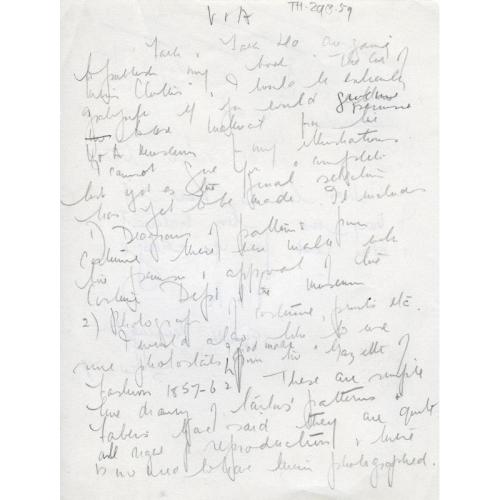 V & A
TH.2913.59
Jack, Jack Ltd are going
to publish my book "The Cut of
Clothes", I would be extremely
grateful if you would
to use material from the
V & A Museum for my illustrations
I cannot give you a complete
list yet as the final selection
has yet to be made. It includes
1) Diagrams of patterns from
costume there. I was made with
the permission & approval of the
Costume Dept of the Museum
2) Photographs of costume, prints etc.
I would also like to use
some photostats from the Gazette of
Fashion 1857-62 These are simple
line drawings of Tailors' patterns
said they are quite
all right reproduction & there
is no need to have them photographed.